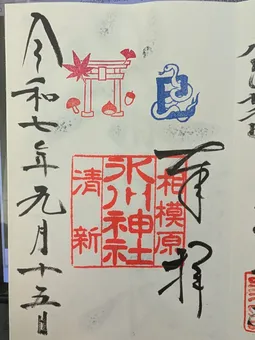 巳
奉拝
相模原
氷川神社
清新
令和七年九月十五日